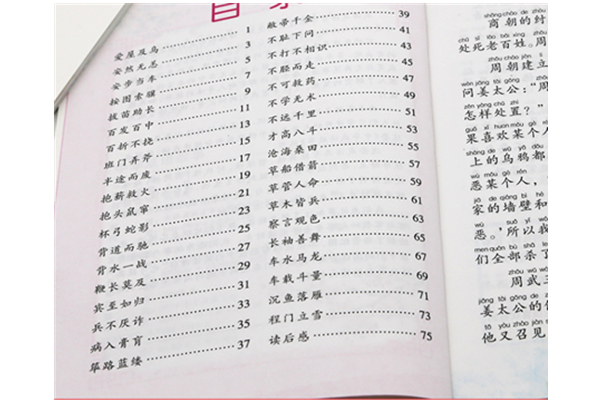 目录
爱屋及乌 1
安然无恙 3
安步当车 5
按图索骥 7
拔苗助长 9
百发百中 11
百折不挠 13
班门弄斧 15
半途而废 17
抱薪救火 19
抱头鼠窜 21
杯弓蛇影 23
背道而驰 25
背水一战 27
鞭长莫及 29
宾至如归 31
兵不厌诈 33
病入膏肓 35
筚路蓝缕 37
敝帚千金 39
不耻下问 41
不打不相识 43
不胫而走 45
不可救药 47
不学无术 49
不远千里 51
才高八斗 53
沧海桑田 55
草船借箭 57
草菅人命 59
草木皆兵 61
察言观色 63
长袖善舞 65
车水马龙 67
车载斗量 69
沉鱼落雁 71
程门立雪 73
读后感 75
商朝的纣
处死老百姓。周
周朝建立
问姜太公：“周
怎样处置？”
果喜欢某个人
上的乌鸦都
恶某个人，
家的墙壁和
恶。’所以我
们全部杀了
周武王
姜太公的
他又召见